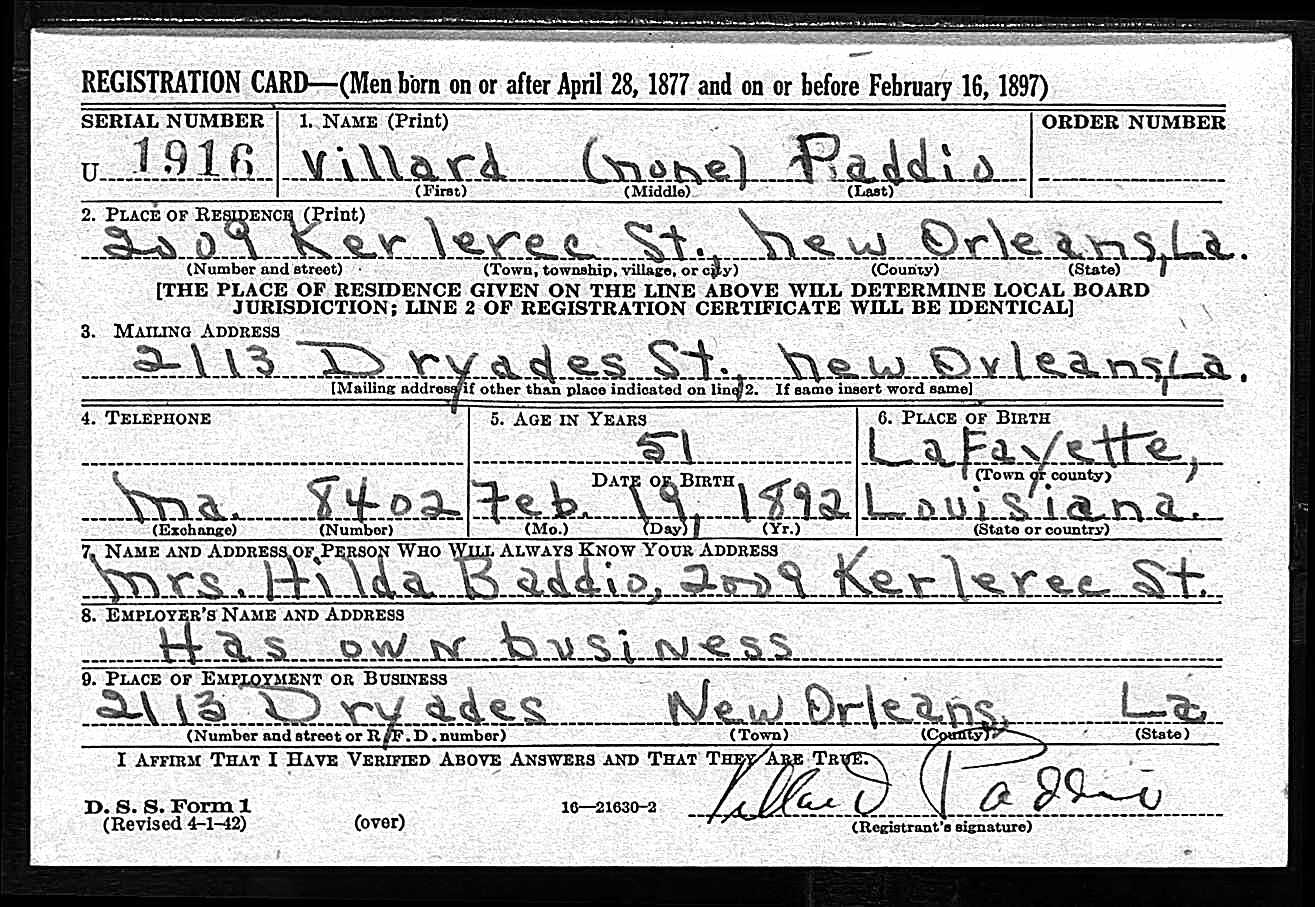 REGISTRATION CARD—(Men born on or after April 28, 1877 and on or before February 16, 1897)
SERIAL NUMBER 1. NAME (Print) ORDER NUMBER
U 1916 Villard (none) Paddio
(First) (Middle) (Last)
2. PLACE OF RESIDENCE (Print)
2009 Kerlerec St., New Orleans, La.
(Number and street) (Town, township, village, or city) (County) (State)
[THE PLACE OF RESIDENCE GIVEN ON THE LINE ABOVE WILL DETERMINE LOCAL BOARD
JURISDICTION; LINE 2 OF REGISTRATION CERTIFICATE WILL BE IDENTICAL]
3. MAILING ADDRESS
2113 Dryades St., New Orleans, La.
[Mailing address if other than place indicated on line 2. If same insert word same]
4. TELEPHONE 5. AGE IN YEARS 6. PLACE OF BIRTH
51 LaFayette,
DATE OF BIRTH (Town or county)
Ma. 8402 Feb. 19, 1892 Louisiana.
(Exchange) (Number) (Mo.) (Day) (Yr.) (State or country)
7. NAME AND ADDRESS OF PERSON WHO WILL ALWAYS KNOW YOUR ADDRESS
Mrs. Hilda Baddio, 2009 Kerlerec St.
8. EMPLOYER'S NAME AND ADDRESS
Has own business
9. PLACE OF EMPLOYMENT OR BUSINESS
2113 Dryades New Orleans, La.
(Number and street or R. F. D. number) (Town) (County) (State)
I AFFIRM THAT I HAVE VERIFIED ABOVE ANSWERS AND THAT THEY ARE TRUE.
D. S. S. Form 1 16—21630-2 Villard Paddio
(Revised 4-1-42) (over) (Registrant's signature)